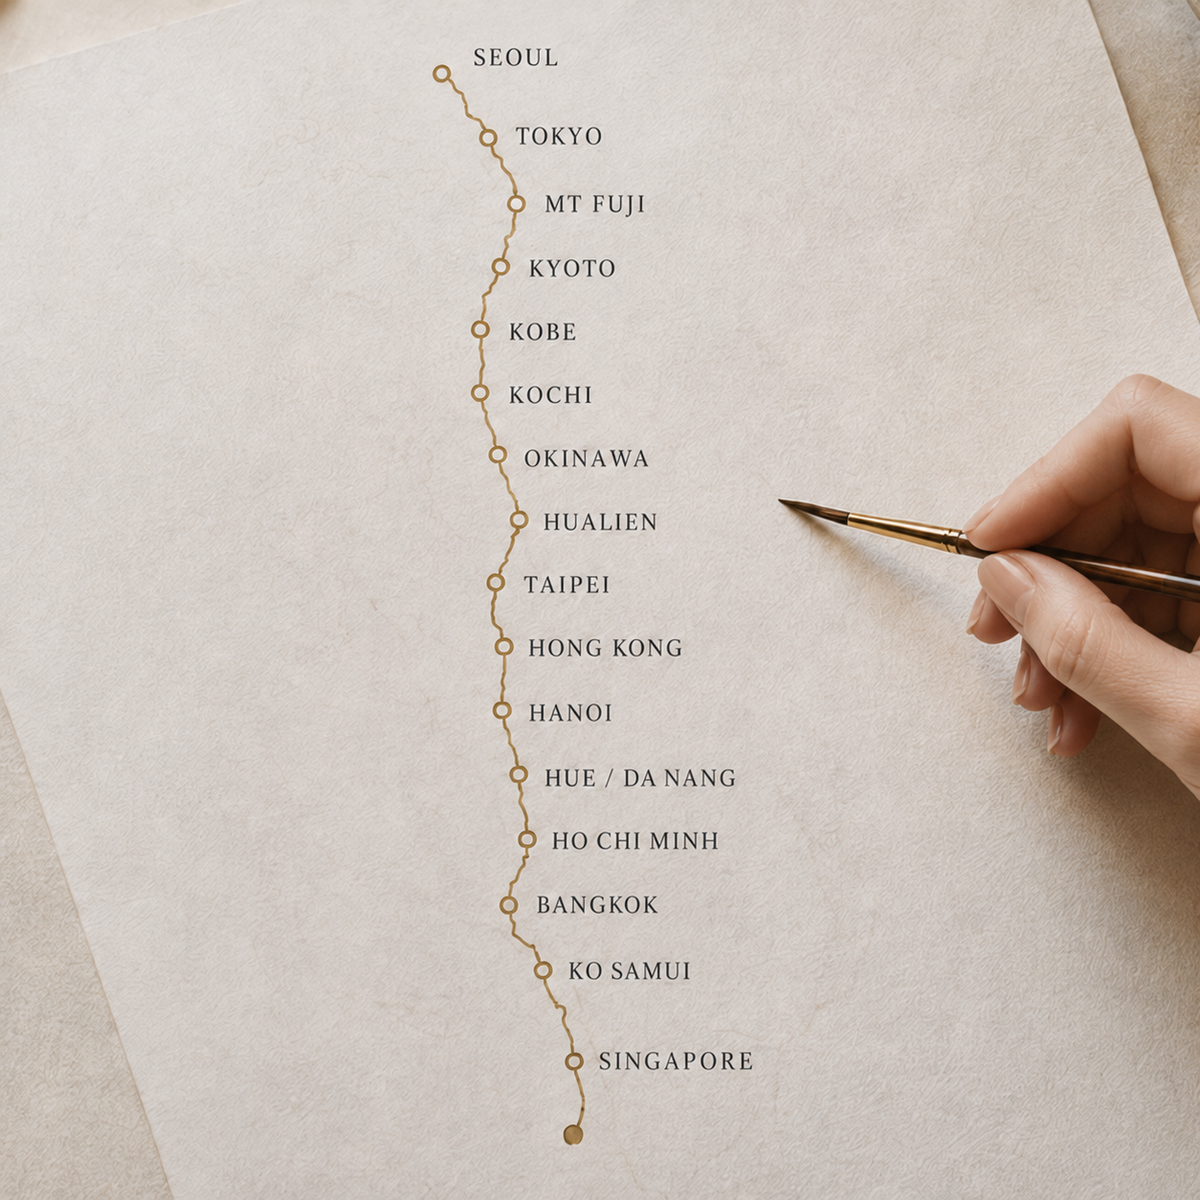 SEOUL
TOKYO
MT FUJI
KYOTO
KOBE
KOCHI
OKINAWA
HUALIEN
TAIPEI
HONG KONG
HANOI
HUE / DA NANG
HO CHI MINH
BANGKOK
KO SAMUI
SINGAPORE